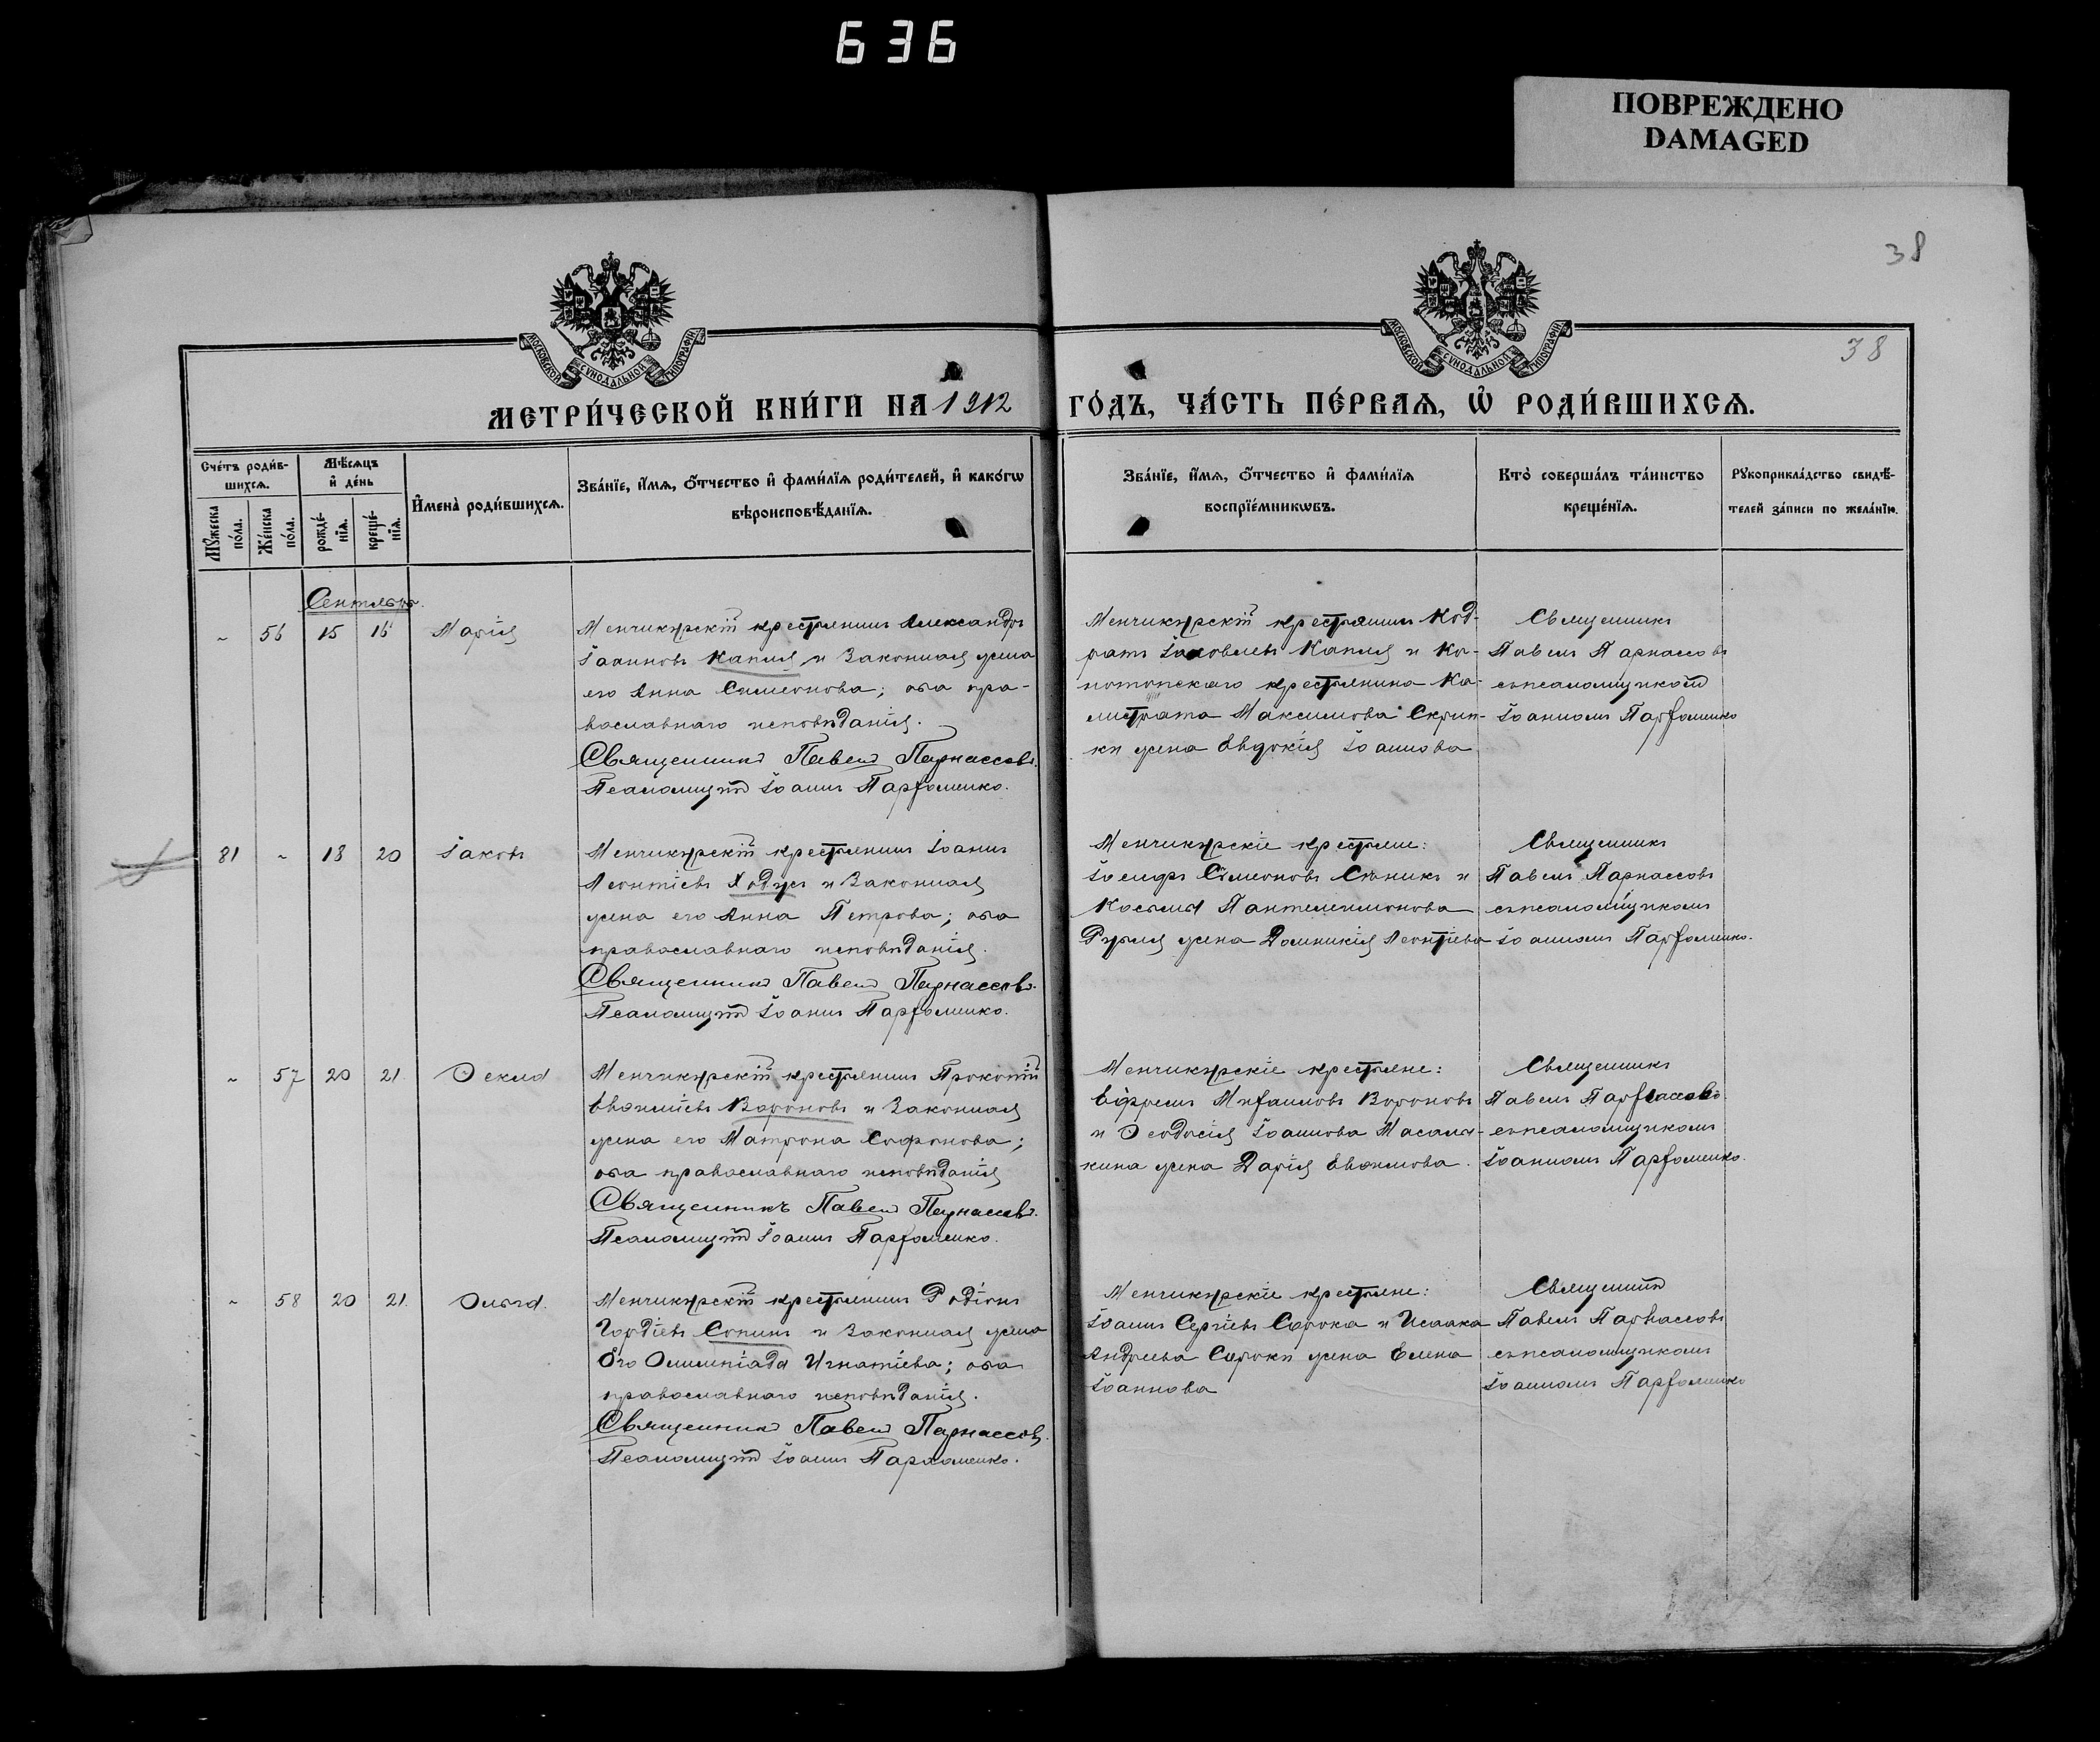 636
ПОВРЕЖДЕНО
DAMAGED
38
38
МОСКОВСКОЙ СѴНОДАЛЬНОЙ ТИПОГРАФІИ
МОСКОВСКОЙ СѴНОДАЛЬНОЙ ТИПОГРАФІИ
МЕТРИ́ЧЕСКОЙ КНИ́ГИ НА 1912 ГО́ДЪ, ЧА́СТЬ ПЕ́РВАѦ, Ѡ҆ РОДИ́ВШИХСѦ.
Сче́тъ роди́в-
шихсѧ.
Мѣ́сѧцъ
и҆ де́нь
Мꙋ́жеска
по́ла.
Же́нска
по́ла.
рожде́-
нїѧ.
креще́-
нїѧ.
И҆мена̀ роди́вшихсѧ.
Зва́нїе, и҆́мѧ, ѻ҆́тчество и҆ фами́лїѧ роди́телей, и҆ како́гѡ
вѣроисповѣ́данїѧ.
Зва́нїе, и҆́мѧ, ѻ҆́тчество и҆ фами́лїѧ
воспрїе́мникѡвъ.
Кто̀ соверша́лъ та́инство
креще́нїѧ.
Рꙋкоприкла́дство свидѣ́-
телей за́писи по жела́нїю.
Сентябрь.
„ 56 15 16 Марія
Менчикурскій крестьянинъ Александръ
Іоанновъ Капля и законная жена
его Анна Симеонова; оба пра-
вославнаго исповѣданія.
Священникъ Павелъ Парнассовъ.
Псаломщикъ Іоаннъ Парѳоменко.
Менчикурскій крестьянинъ Код-
ратъ Іаковлевъ Капля и Ко-
нотопскаго крестьянина Ка-
листрата Максимова Скрип-
ки жена Евдокія Іоаннова
Священникъ
Павелъ Парнассовъ
съ псаломщикомъ
Іоанномъ Парѳоменко
81 „ 18 20 Іаковъ
Менчикурскій крестьянинъ Іоаннъ
Леонтіевъ Ходусъ и законная
жена его Анна Петрова; оба
православнаго исповѣданія.
Священникъ Павелъ Парнассовъ.
Псаломщикъ Іоаннъ Парѳоменко.
Менчикурскіе крестьяне:
Іосифъ Симеоновъ Сѣникъ и
Косьмы Пантелеимонова
жена Домникія Леонтіева
Священникъ
Павелъ Парнассовъ
съ псаломщикомъ
Іоанномъ Парѳоменко.
„ 57 20 21. Ѳекла
Менчикурскій крестьянинъ Прокопій
Евѳиміевъ Вороновъ и законная
жена его Матрона Софонова;
оба православнаго исповѣданія
Священникъ Павелъ Парнассовъ.
Псаломщикъ Іоаннъ Парѳоменко.
Менчикурскіе крестьяне:
Ефремъ Михаиловъ Вороновъ
и Ѳеодосія Іоаннова Масалы-
кина жена Дарія Евѳимова.
Священникъ
Павелъ Парнассовъ
съ псаломщикомъ
Іоанномъ Парѳоменко.
„ 58 20 21. Ольга.
Менчикурскій крестьянинъ Родіонъ
Гордіевъ Сопинъ и законная жена
его Олимпіада Игнатіева; оба
православнаго исповѣданія.
Священникъ Павелъ Парнассовъ.
Псаломщикъ Іоаннъ Парѳоменко.
Менчикурскіе крестьяне:
Іоаннъ Сергіевъ Сорока и Исаака
Андреева Сороки жена Елена
Іоаннова
Священникъ
Павелъ Парнассовъ
съ псаломщикомъ
Іоанномъ Парѳоменко